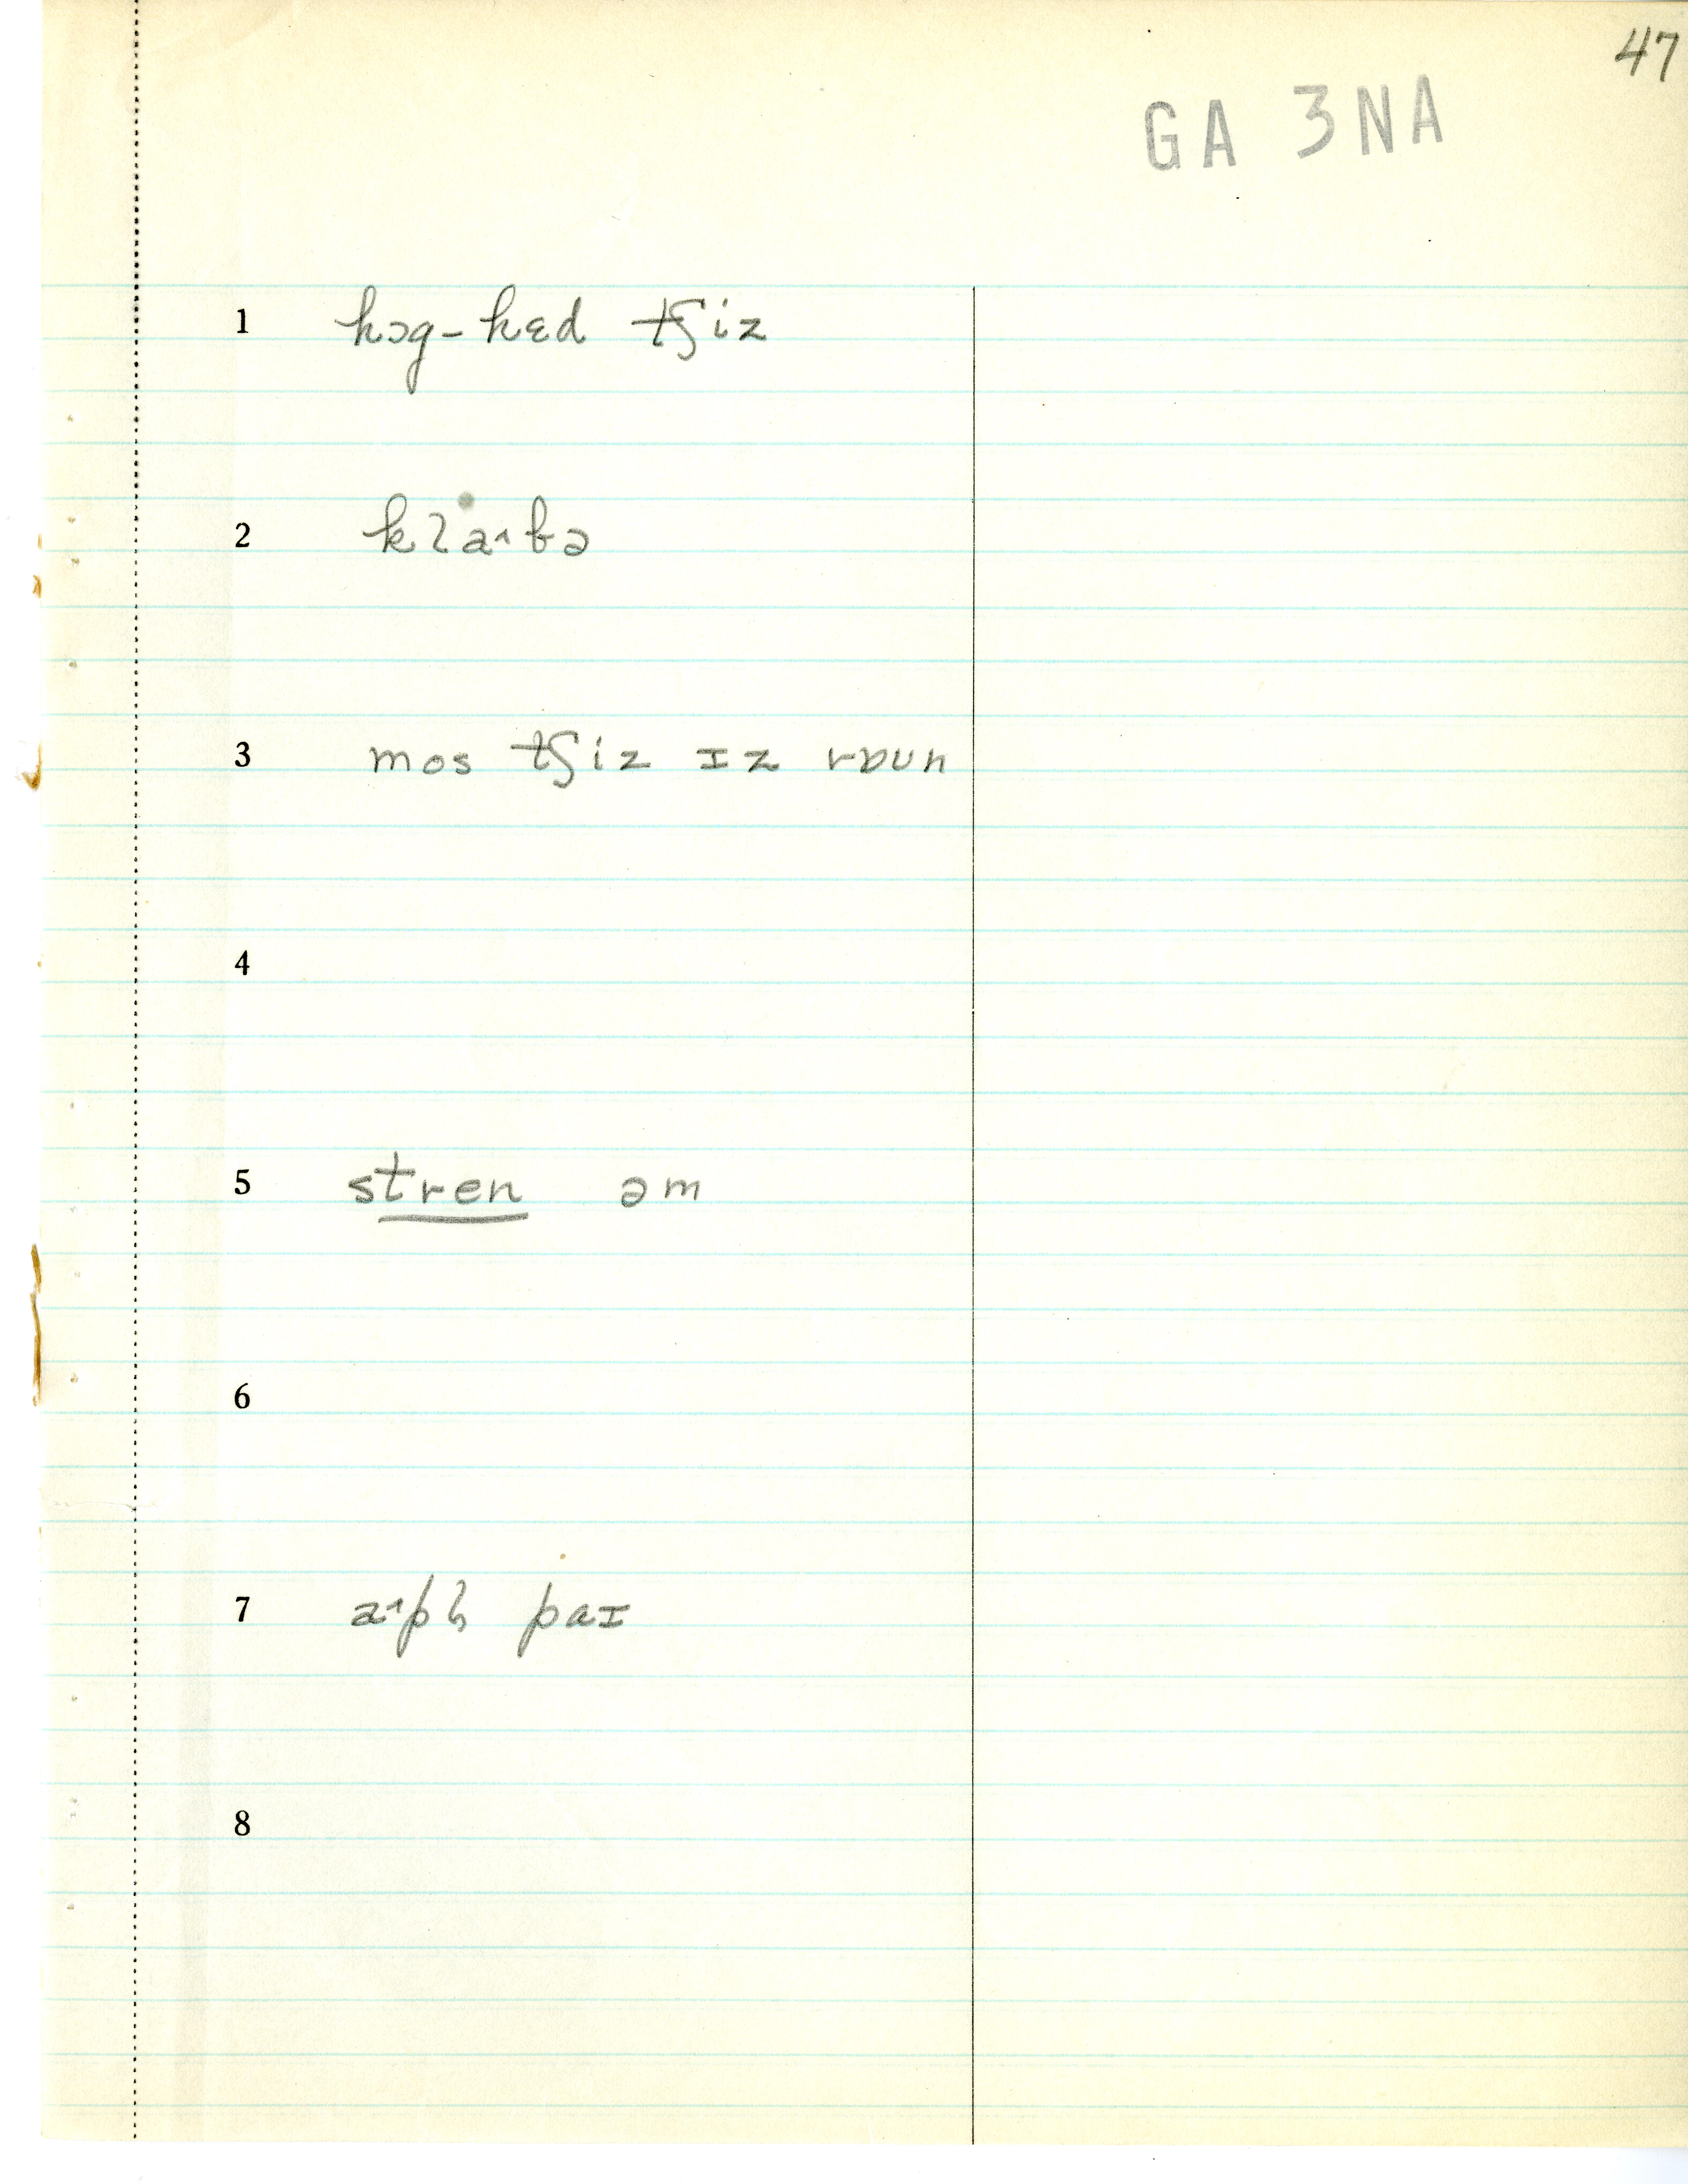 47
GA 3NA
1 hɔg-hɛd tʃiz
2 klaˆbə
3 mos tʃiz ɪz rɒun
4
5 stren əm
6
7 aˆpɫ paɪ
8